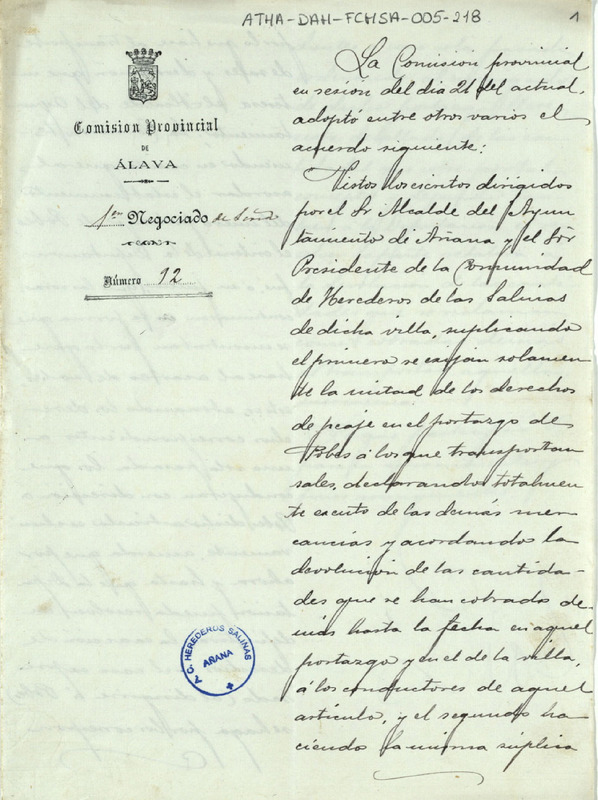 ATHA-DAH-FCHSA-005-218
1
Comision Provincial
DE
ÁLAVA
1er Negociado de
Número 12
La Comision provincial
en sesion del dia 21 del actual,
adoptó entre otros varios el
acuerdo siguiente:
Vistos los escritos dirigidos
por el Sr Alcalde del Ayun
tamiento de Añana y el Sor
Presidente de la Comunidad
de Herederos de las Salinas
de dicha villa, suplicando
el primero se exijan solamen
te la mitad de los derechos
de peaje en el portazgo de
Pobes á los que transportan
sales, declarandos totalmen
te exento de las demás mer
cancias y acordandos la
devolucion de las cantida-
des que se han cobrado de
mas hasta la fecha en aquel
portazgo y en el de la villa,
á los conductores de aquel
artículo, y el segundo ha
ciendo la misma súplica
A. C. HEREDEROS SALINAS
AÑANA